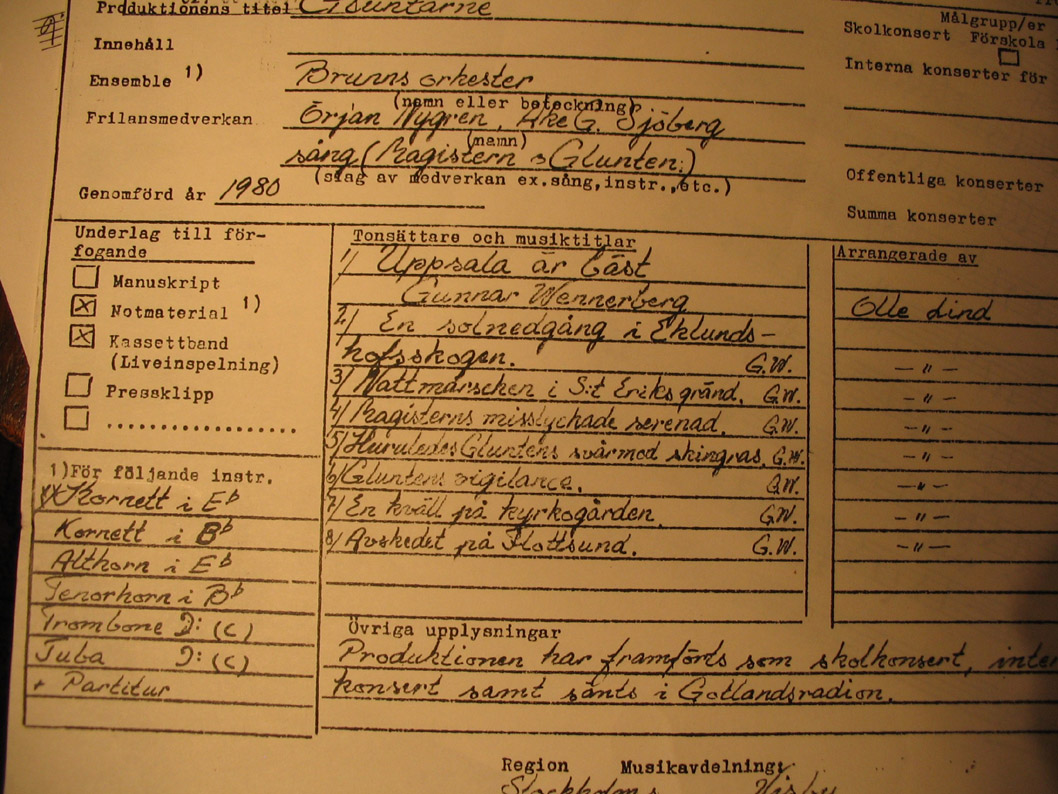 Produktionens titel Gluntarne
Målgrupp/er
Skolkonsert Förskola
Innehåll
Interna konserter för
Ensemble 1) Brunns orkester
(namn eller beteckning)
Frilansmedverkan Örjan Nygren, Åke G. Sjöberg
(namn)
sång (Magistern o Glunten.)
(slag av medverkan ex.sång,instr.,etc.)
Offentliga konserter
Genomförd år 1980
Summa konserter
Underlag till för-
fogande
Manuskript
Notmaterial 1)
Kassettband
(Liveinspelning)
Pressklipp
..................
1)För följande instr.
Kornett i Eb
Kornett i Bb
Althorn i Eb
Tenorhorn i Bb
Trombone (C)
Tuba (C)
+ Partitur
Tonsättare och musiktitlar
1/ Uppsala är bäst
Gunnar Wennerberg
2/ En solnedgång i Eklunds-
hofsskogen. G.W.
3/ Nattmarschen i S:t Eriks gränd. G.W.
4/ Magisterns misslyckade serenad. G.W.
5/ Huruledes Gluntens svårmod skingras. G.W.
6/ Gluntens vigilance. G.W.
7/ En kväll på kyrkogården. G.W.
8/ Avskedet på Flottsund. G.W.
Arrangerade av
Olle Lind
— " —
— " —
— " —
— " —
— " —
— " —
— " —
Övriga upplysningar
Produktionen har framförts som skolkonsert, inter
konsert samt sänts i Gotlandsradion.
Region Musikavdelning:
Stockholms Visby